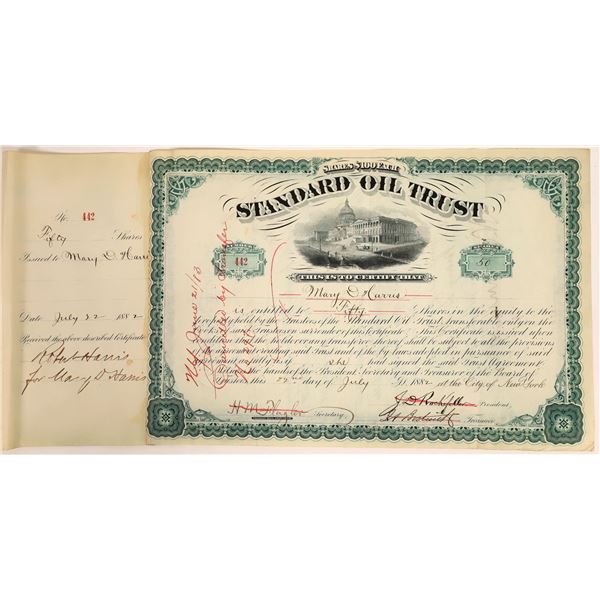 No. 442
Fifty Shares
Issued to Mary D Harris
Date July 22 1882
Received the above described Certificate
Robt Harris
for Mary D Harris
SHARES $100 EACH
STANDARD OIL TRUST
442
50
THIS IS TO CERTIFY THAT
Mary D. Harris
is entitled to Fifty shares in the equity to
the property held by the Trustees of the Standard Oil Trust, transferable only on the
books of said Trustees on surrender of this Certificate. This Certificate is issued upon
condition that the holder or any transferee thereof shall be subject to all the provisions
of the agreement creating said Trust and of the by-laws adopted in pursuance of said
agreement as fully as if she had signed the said Trust Agreement
Witness the hands of the President Secretary and Treasurer of the Board of
Trustees this 22nd day of July A.D. 1882 at the City of New York
H M Flagler Secretary
J D Rockefeller President
Treasurer
June 21/83
by transfer